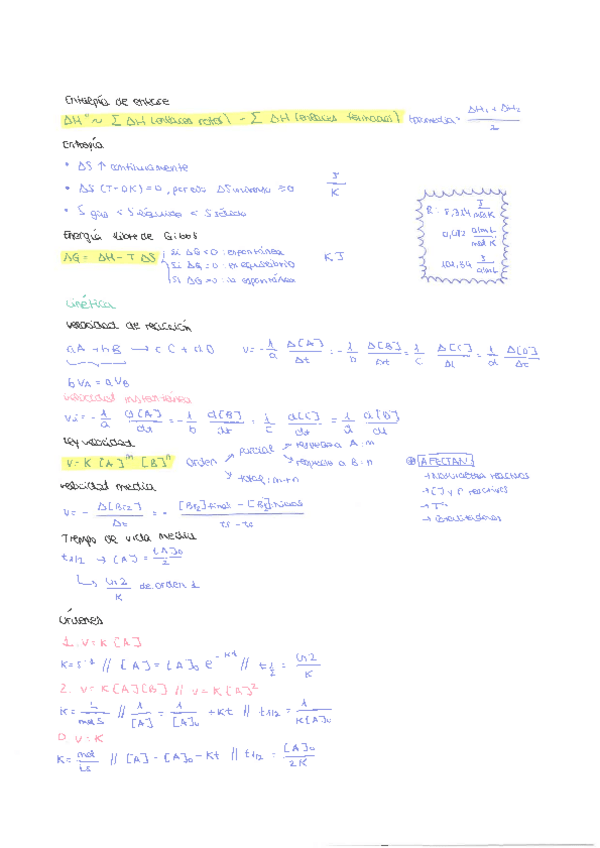 Entalpía de enlace
ΔH° ~ Σ ΔH (enlaces rotos) - Σ ΔH (enlaces formados) ΔH1 + ΔH2 / 2
Entropía
• ΔS ↑ continuamente
• ΔS (T=0K) = 0, por eso ΔS universo ≥0 J/K
• S gas < S líquido < S sólido
R: 8,314 J/mol K
0,082 atm L/mol K
J/atm L
Energía libre de Gibbs
ΔG = ΔH - T ΔS
Si ΔG<0: espontánea
Si ΔG=0: en equilibrio
Si ΔG>0: no espontánea
KJ
Cinética
Velocidad de reacción
aA + bB → cC + dD v = -1/a Δ[A]/Δt = -1/b Δ[B]/Δt = 1/c Δ[C]/Δt = 1/d Δ[D]/Δt
bVA = aVB
Velocidad instantánea
Vi = -1/a d[A]/dt = -1/b d[B]/dt = 1/c d[C]/dt = 1/d d[D]/dt
Ley velocidad
v = K [A]^m [B]^n orden
parcial → respecto a A: m
→ respecto a B: n
total: m+n
AFECTAN
→ reactivos
→ [ ] y P reactivos
→ T°
→ Catalizadores
Velocidad media
v = - Δ[Br2]/Δt = - [Br2]final - [Br2]inicial /
Tiempo de vida media
t1/2 → [A] = [A]0/2
↳ ln2/K de orden 1
Órdenes
1. v = K [A]
K = s^-1 // [A] = [A]0 e^-Kt // t1/2 = ln2/K
2. v = K [A][B] // v = K [A]²
K = L/mol s // 1/[A] = 1/[A]0 + Kt // t1/2 = 1/K[A]0
0 v = K
K = mol/Ls // [A] = [A]0 - Kt // t1/2 = [A]0/2K